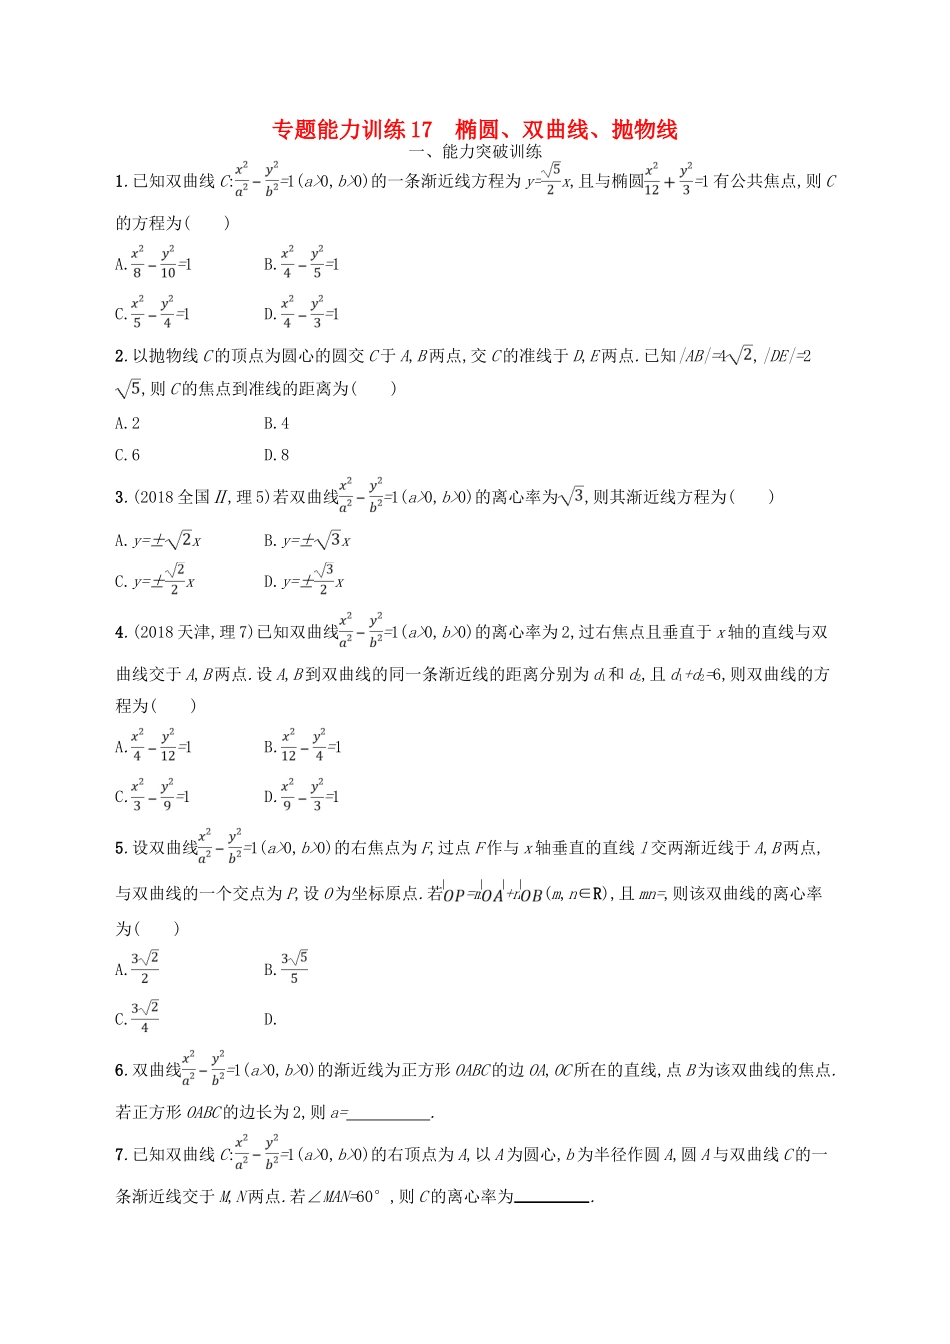 专题能力训练17　椭圆、双曲线、抛物线
一、能力突破训练
1.已知双曲线C:x²/a²−y²/b²=1(a>0,b>0)的一条渐近线方程为y=√5/2x,且与椭圆x²/12+y²/3=1有公共焦点,则C
的方程为(　　)
A.x²/8−y²/10=1　B.x²/4−y²/5=1
C.x²/5−y²/4=1　D.x²/4−y²/3=1
2.以抛物线C的顶点为圆心的圆交C于A,B两点,交C的准线于D,E两点.已知|AB|=4√2,|DE|=2
√5,则C的焦点到准线的距离为(　　)
A.2　B.4
C.6　D.8
3.(2018全国Ⅱ,理5)若双曲线x²/a²−y²/b²=1(a>0,b>0)的离心率为√3,则其渐近线方程为(　　)
A.y=±√2x　B.y=±√3x
C.y=±√2/2x　D.y=±√3/2x
4.(2018天津,理7)已知双曲线x²/a²−y²/b²=1(a>0,b>0)的离心率为2,过右焦点且垂直于x轴的直线与双
曲线交于A,B两点.设A,B到双曲线的同一条渐近线的距离分别为d₁和d₂,且d₁+d₂=6,则双曲线的方
程为(　　)
A.x²/4−y²/12=1　B.x²/12−y²/4=1
C.x²/3−y²/9=1　D.x²/9−y²/3=1
5.设双曲线x²/a²−y²/b²=1(a>0,b>0)的右焦点为F,过点F作与x轴垂直的直线l交两渐近线于A,B两点,
与双曲线的一个交点为P,设O为坐标原点.若OP=mOA+nOB(m,n∈R),且mn=,则该双曲线的离心率
为(　　)
A.3√2/2　B.3√5/5
C.3√2/4　D.
6.双曲线x²/a²−y²/b²=1(a>0,b>0)的渐近线为正方形OABC的边OA,OC所在的直线,点B为该双曲线的焦点.
若正方形OABC的边长为2,则a=__________.
7.已知双曲线C:x²/a²−y²/b²=1(a>0,b>0)的右顶点为A,以A为圆心,b为半径作圆A,圆A与双曲线C的一
条渐近线交于M,N两点.若∠MAN=60°,则C的离心率为_________.